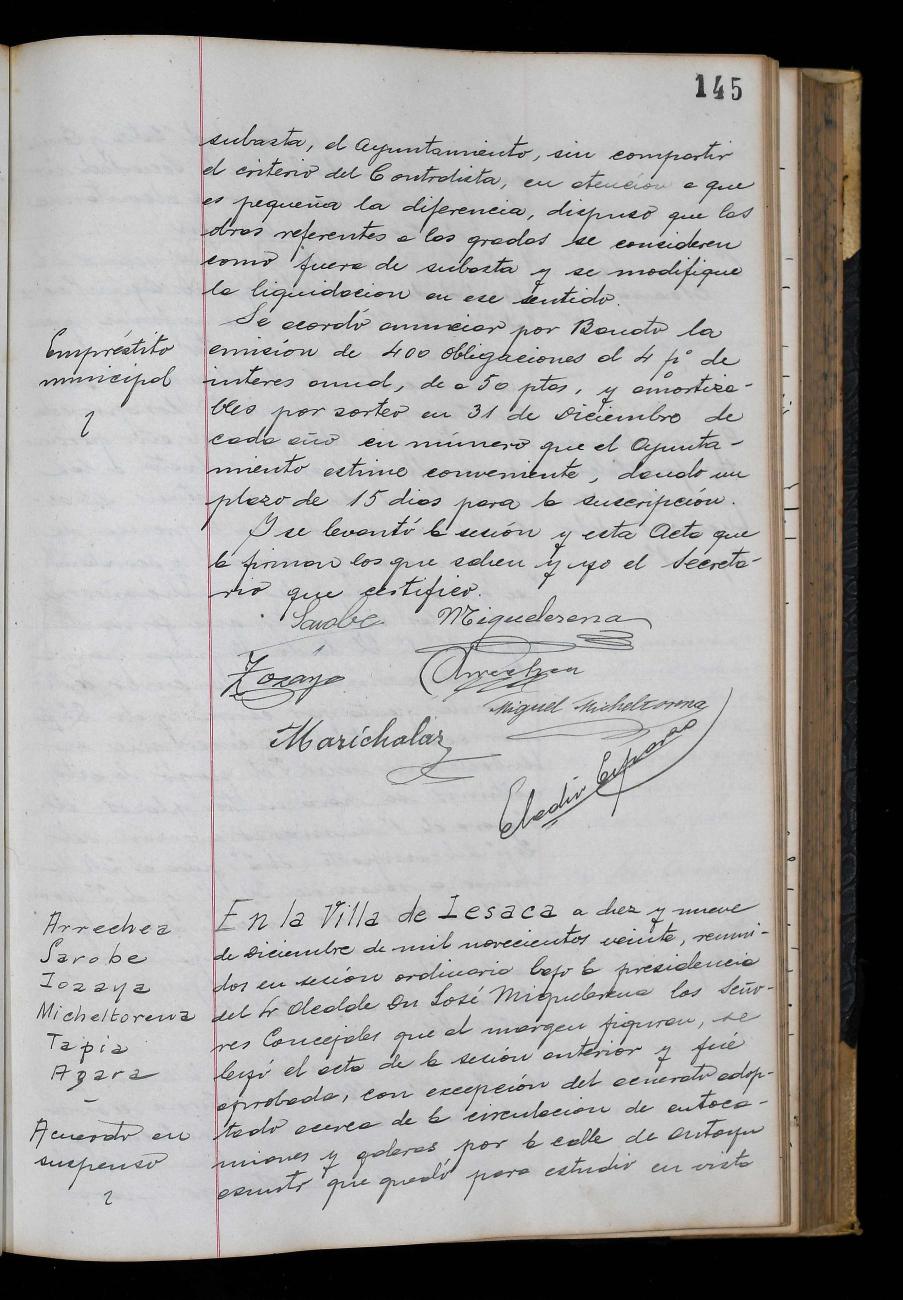 145
subasta, el Ayuntamiento, sin compartir
el criterio del Contratista, en atencion a que
es pequeña la diferencia, dispuso que las
obras referentes a las gradas se consideren
como fuera de subasta y se modifique
la liquidacion en ese sentido.
Empréstito
municipal
Se acordó anunciar por Bando la
emisión de 400 obligaciones al 4 pº de
interes anual, de a 50 ptas, y amortiza-
bles por sorteo en 31 de Diciembre de
cada año en número que el Ayunta-
miento estime conveniente, dando un
plazo de 15 dias para la suscripcion.
Y se levantó la sesión y esta Acta que
la firman los que saben y yo el Secreta-
rio que certifico.
Sarobe Miguelerena
Zozaya Arrechea
Miguel Micheltorena
Marichalar
Eladio Esparza
Arrechea
Sarobe
Zozaya
Micheltorena
Tapia
Agara
Acuerdo en
suspenso
En la Villa de Lesaca a diez y nueve
de Diciembre de mil novecientos veinte, reuni-
dos en sesión ordinaria bajo la presidencia
del Sr Alcalde Dn José Miguelerena los Seño-
res Concejales que al margen figuran, se
leyó el acta de la sesión anterior y fué
aprobada, con excepción del acuerdo adop-
tado acerca de la circulacion de autoca-
miones y galeras por la calle de Antoyu
asunto que quedó para estudio en vista